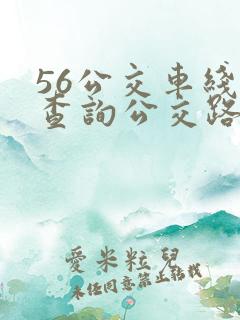 56公交車綫
查詢公交路
愛米粒兒
未经同意禁止转载